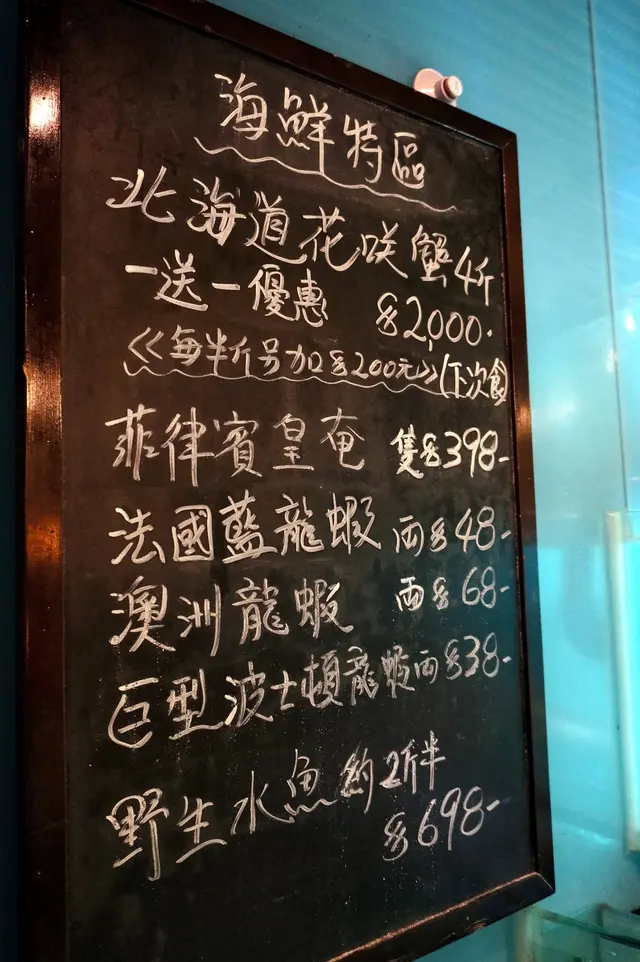 海鮮特區
北海道花咲蟹4斤
一送一優惠 $2,000.
《每半斤另加$200元》(下次食)
菲律賓皇奄 隻$398-
法國藍龍蝦 両$48-
澳洲龍蝦 両$68-
巨型波士頓龍蝦両$38-
野生水魚約2斤半
$698-